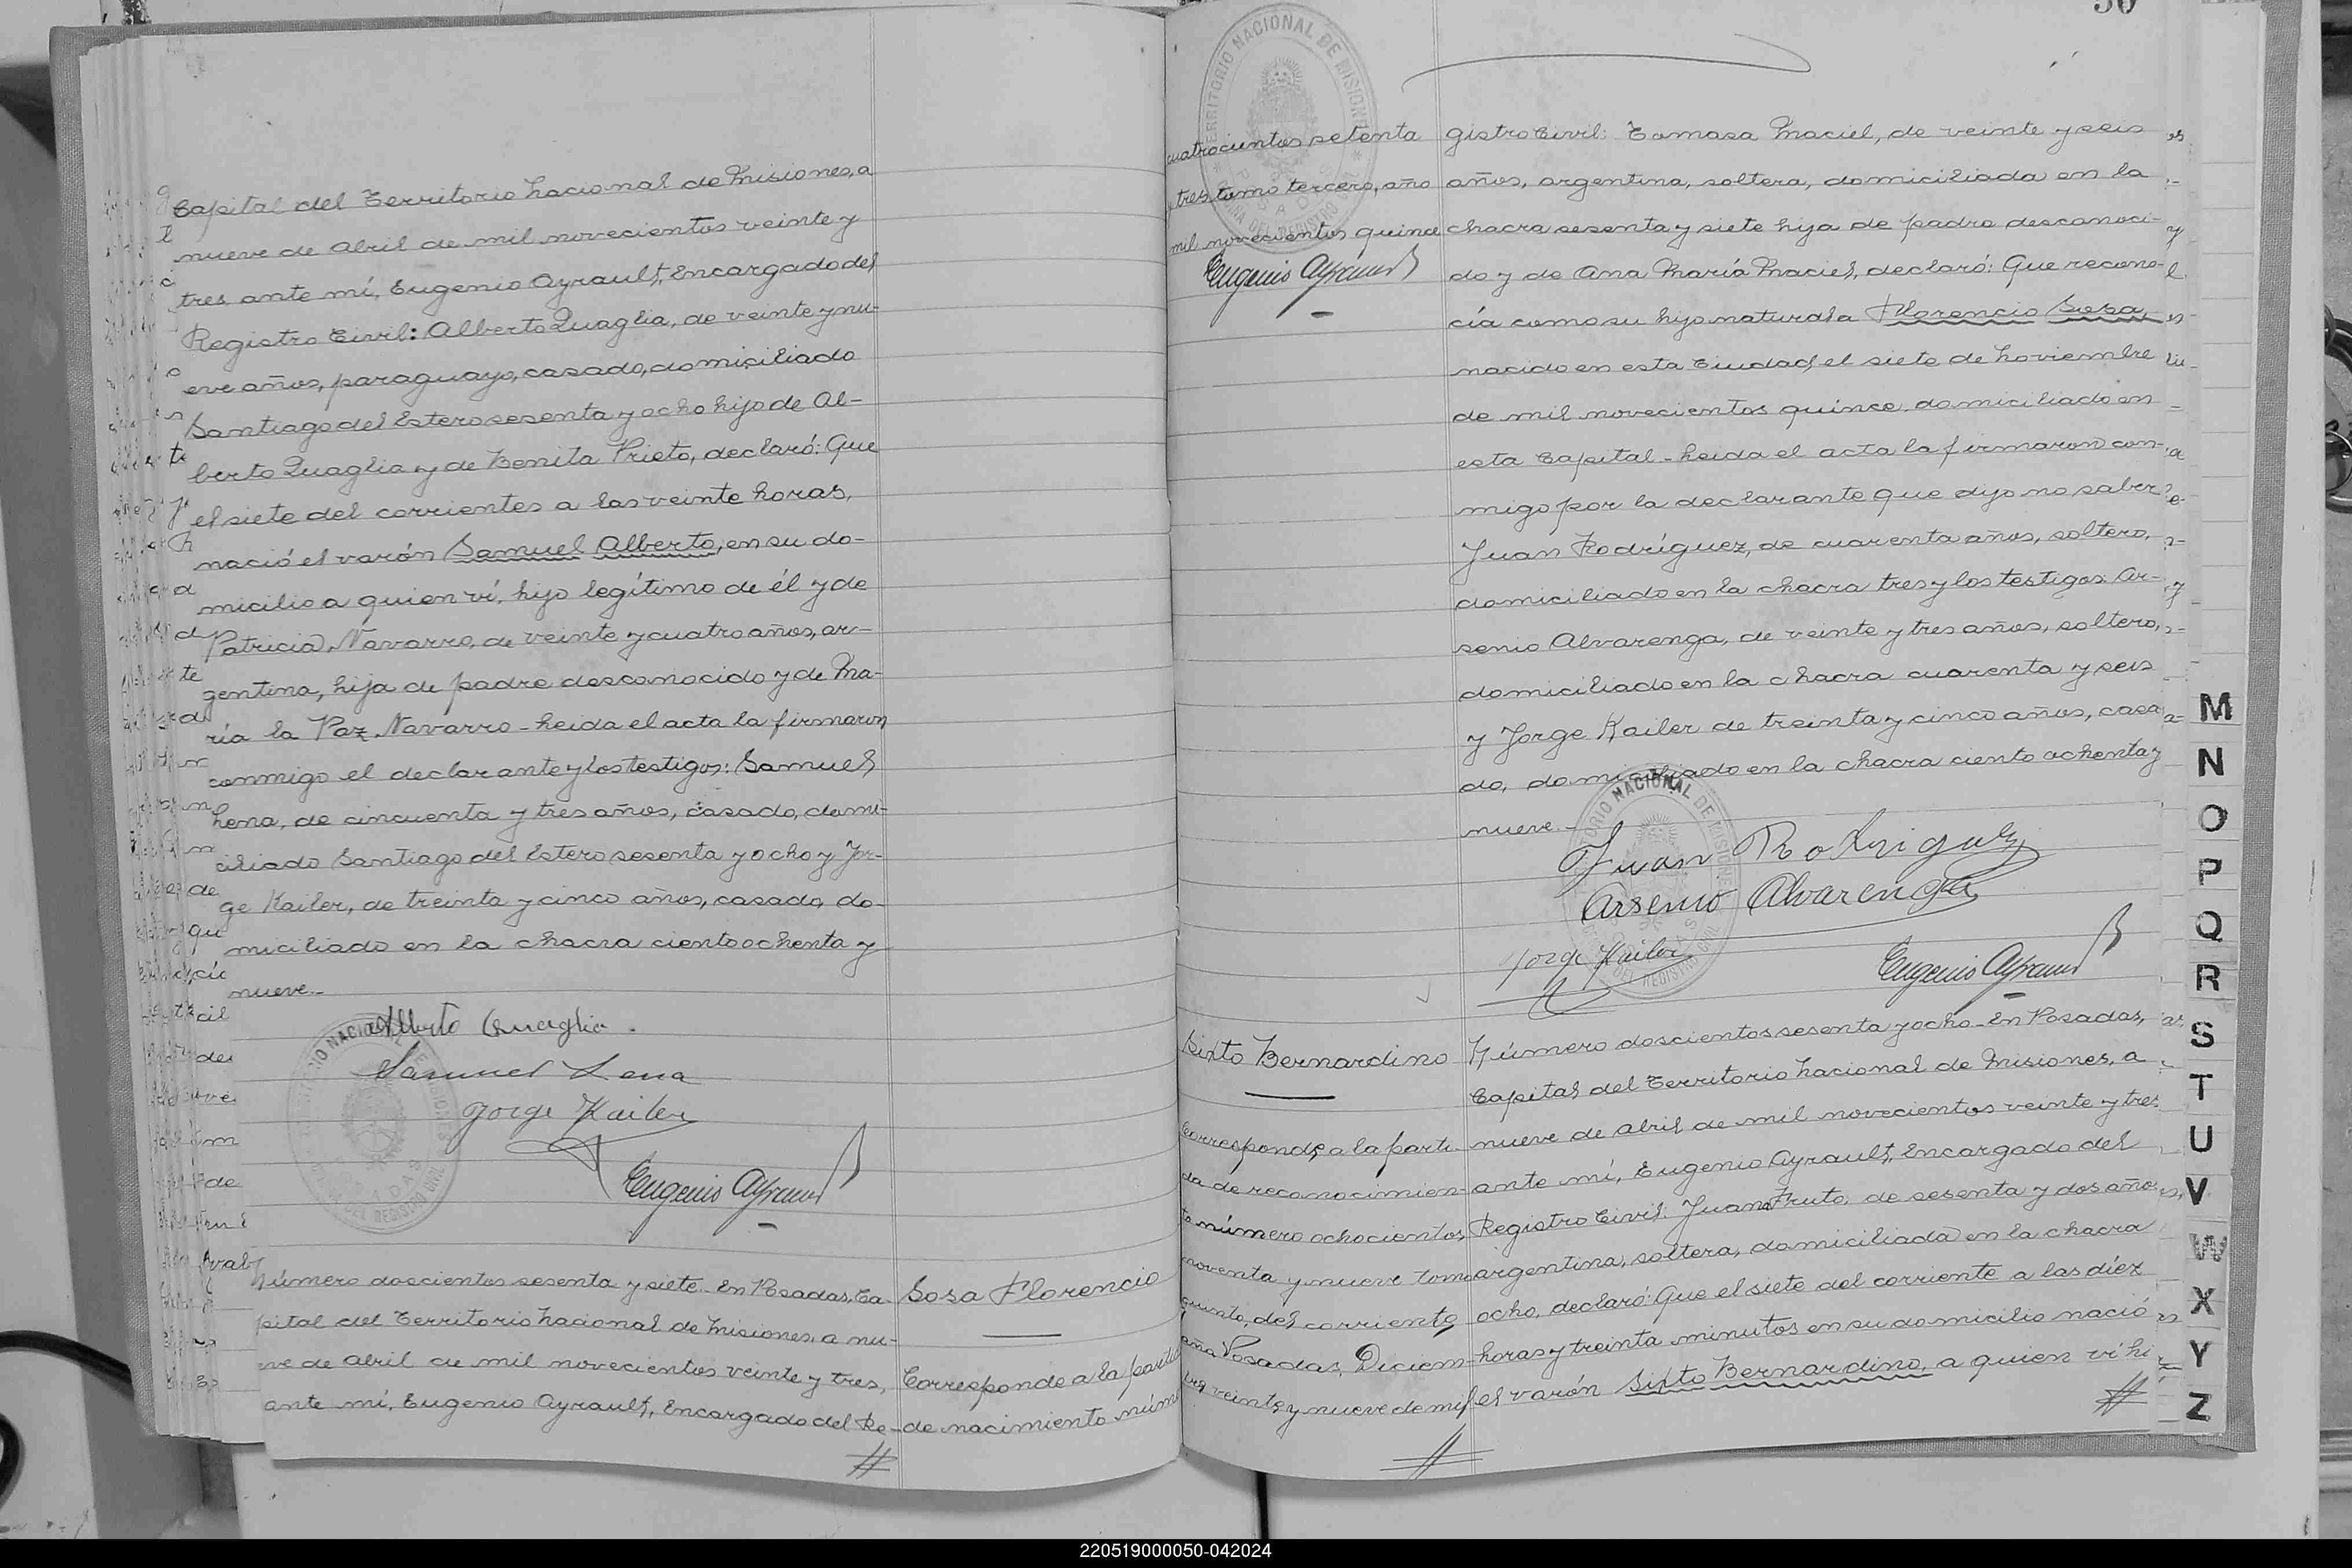 Capital del Territorio Nacional de Misiones, a
nueve de Abril de mil novecientos veinte y
tres ante mí, Eugenio Ayrault, Encargado del
Registro Civil: Alberto Quaglia, de veinte y nu-
eve años, paraguayo, casado, domiciliado
Santiago del Estero sesenta y ocho hijo de Al-
berto Quaglia y de Benita Prieto, declaró: Que
el siete del corrientes a las veinte horas,
nació el varón Samuel Alberto, en su do-
micilio a quien ví, hijo legítimo de él y de
Patricia Navarro, de veinte y cuatro años, ar-
gentina, hija de padre desconocido y de Ma-
ría la Paz Navarro - Leida el acta la firmaron
conmigo el declarante y los testigos: Samuel
Lena, de cincuenta y tres años, casado, domi-
ciliado Santiago del Estero sesenta y ocho y Jor-
ge Kailer, de treinta y cinco años, casado, do-
miciliado en la chacra ciento ochenta y
nueve.-
Alberto Quaglia.
Samuel Lena
Jorge Kailer
Eugenio Ayrault
Número doscientos sesenta y siete. En Posadas, Ca-
pital del Territorio Nacional de Misiones, a nu-
eve de Abril de mil novecientos veinte y tres,
ante mí, Eugenio Ayrault, Encargado del Re-
Sosa Florencio
Corresponde a la partida
de nacimiento núme
50
cuatrocientos setenta
y tres tomo tercero, año
mil novecientos quince
Eugenio Ayrault
gistro Civil: Tomasa Maciel, de veinte y seis
años, argentina, soltera, domiciliada en la
chacra sesenta y siete hija de padre desconoci-
do y de Ana María Maciel, declaró: Que recono-
cía como su hijo natural a Florencio Sosa,
nacido en esta Ciudad, el siete de Noviembre
de mil novecientos quince, domiciliado en
esta Capital - Leida el acta la firmaron con-
migo por la declarante que dijo no saber
Juan Rodríguez, de cuarenta años, soltero,
domiciliado en la chacra tres y los testigos: Ar-
senio Alvarenga, de veinte y tres años, soltero,
domiciliado en la chacra cuarenta y seis
y Jorge Kailer de treinta y cinco años, casa
do, domiciliado en la chacra ciento ochenta y
nueve.-
Juan Rodriguez
Arsenio Alvarenga
Jorge Kailer
Eugenio Ayrault
Sixto Bernardino
Corresponde a la parti-
da de reconocimien-
to número ochocientos
noventa y nueve tomo
quinto, del corriente
año Posadas, Diciem-
bre veinte y nueve de mil
Número doscientos sesenta y ocho - En Posadas,
Capital del Territorio Nacional de Misiones, a
nueve de Abril de mil novecientos veinte y tres
ante mí, Eugenio Ayrault, Encargado del
Registro Civil: Juana Fruto, de sesenta y dos años
argentina, soltera, domiciliada en la chacra
ocho, declaró: Que el siete del corriente a las diéz
horas y treinta minutos en su domicilio nació
el varón Sixto Bernardino, a quien ví hi
M
N
O
P
Q
R
S
T
U
V
W
X
Y
Z
220519000050-042024